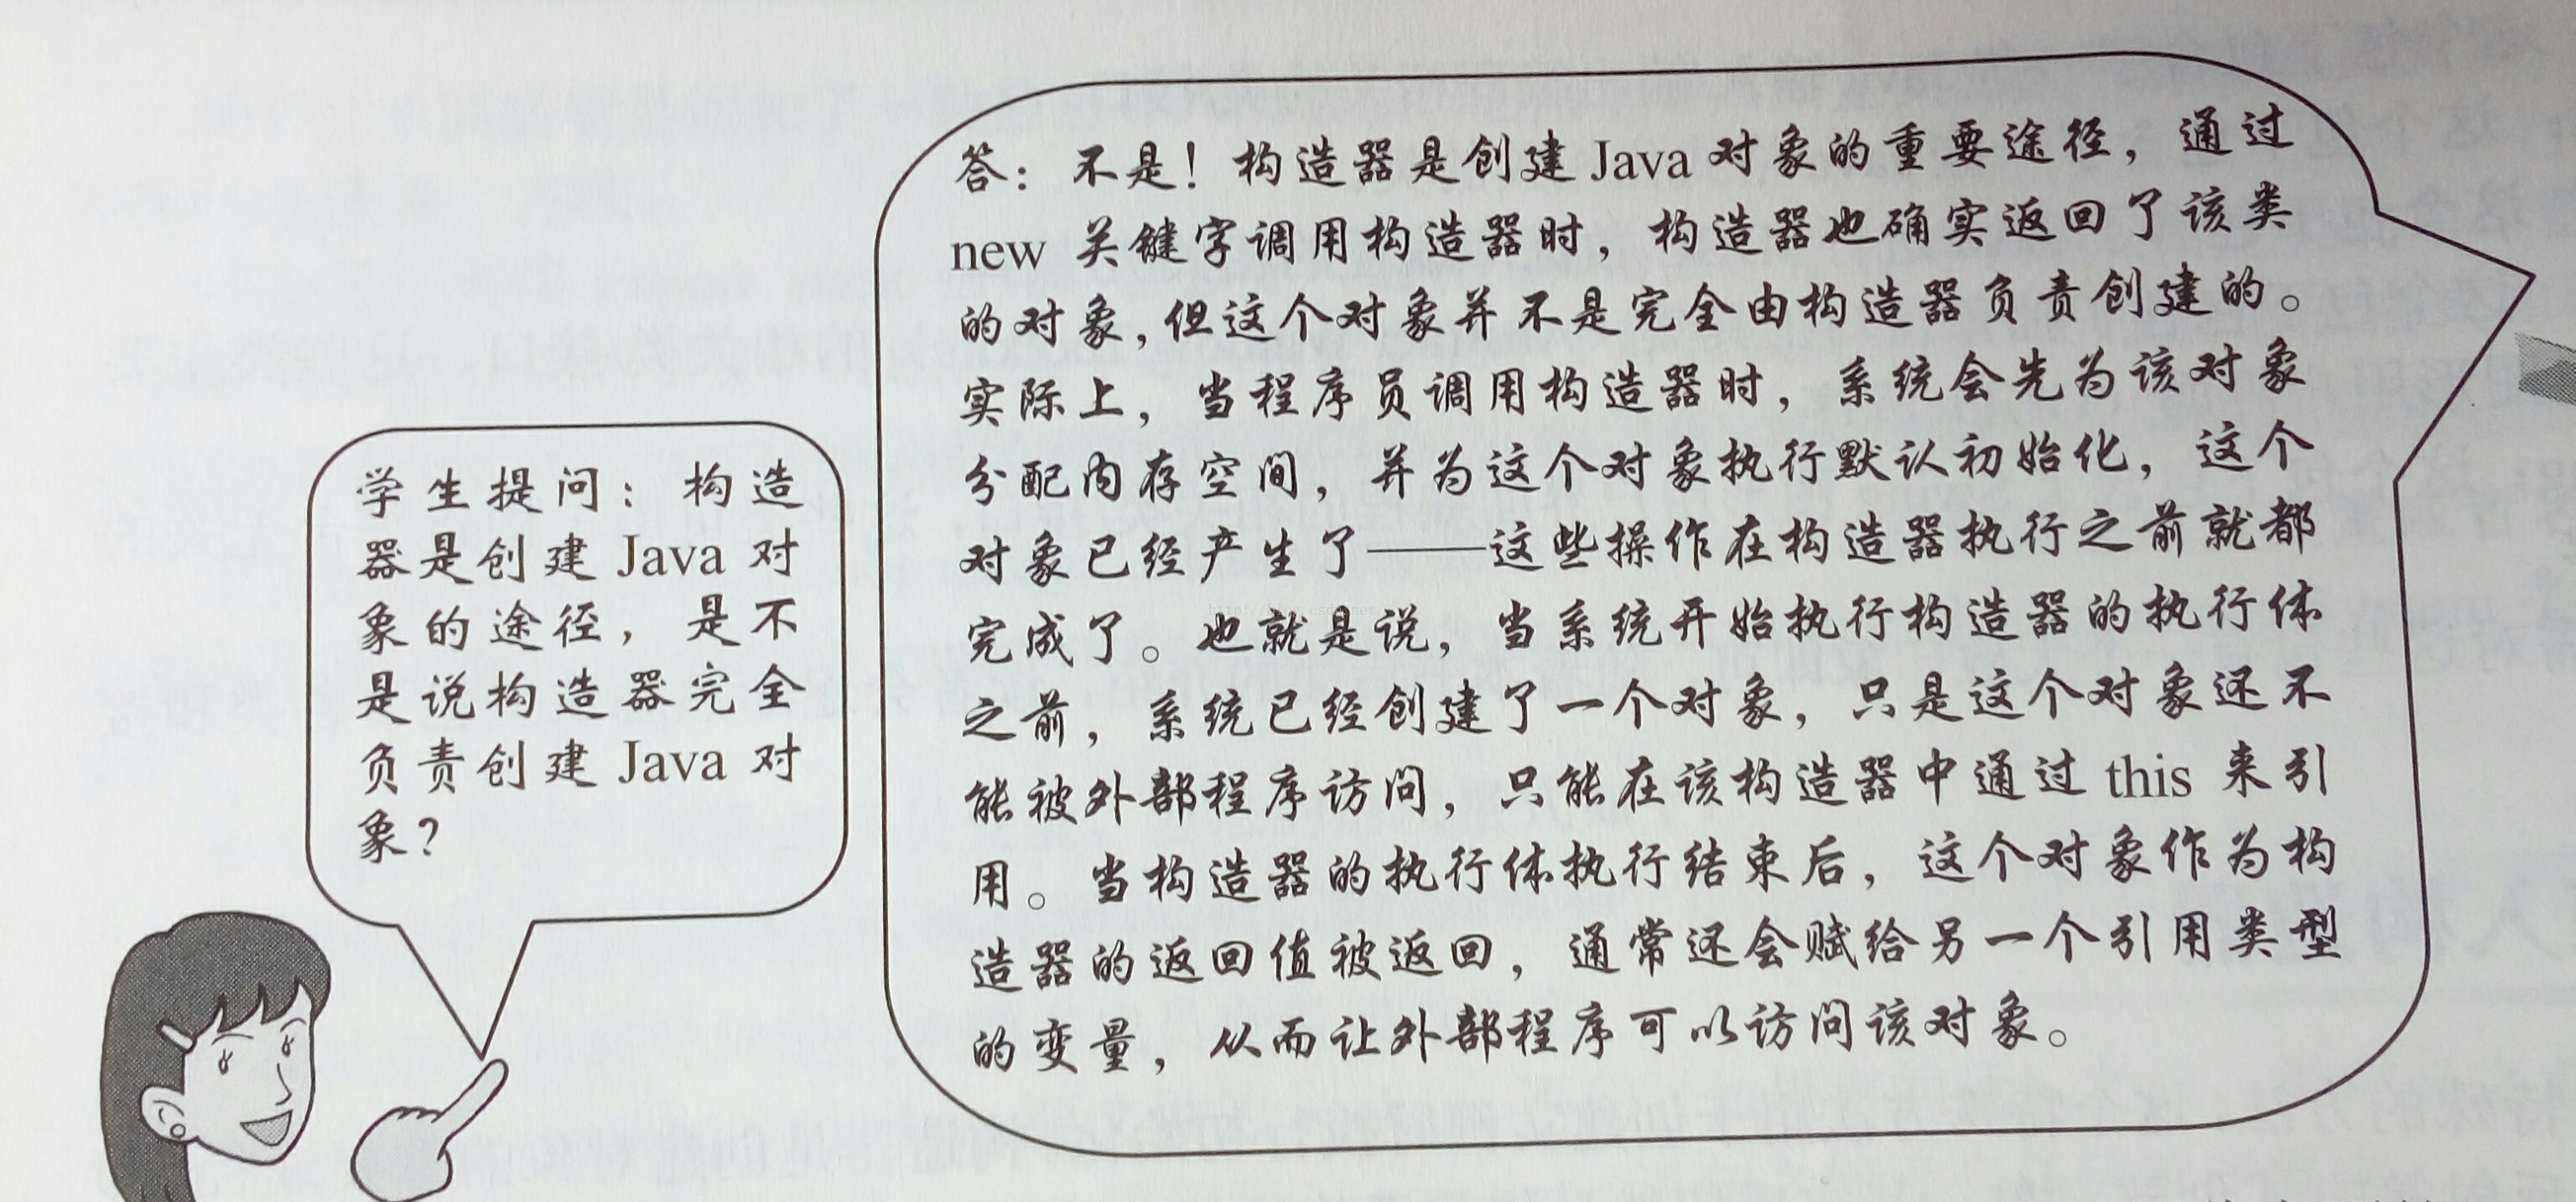 学生提问：构造
器是创建 Java 对
象的途径，是不
是说构造器完全
负责创建 Java 对
象？
答：不是！构造器是创建 Java 对象的重要途径，通过
new 关键字调用构造器时，构造器也确实返回了该类
的对象，但这个对象并不是完全由构造器负责创建的。
实际上，当程序员调用构造器时，系统会先为该对象
分配内存空间，并为这个对象执行默认初始化，这个
对象已经产生了——这些操作在构造器执行之前就都
完成了。也就是说，当系统开始执行构造器的执行体
之前，系统已经创建了一个对象，只是这个对象还不
能被外部程序访问，只能在该构造器中通过 this 来引
用。当构造器的执行体执行结束后，这个对象作为构
造器的返回值被返回，通常还会赋给另一个引用类型
的变量，从而让外部程序可以访问该对象。